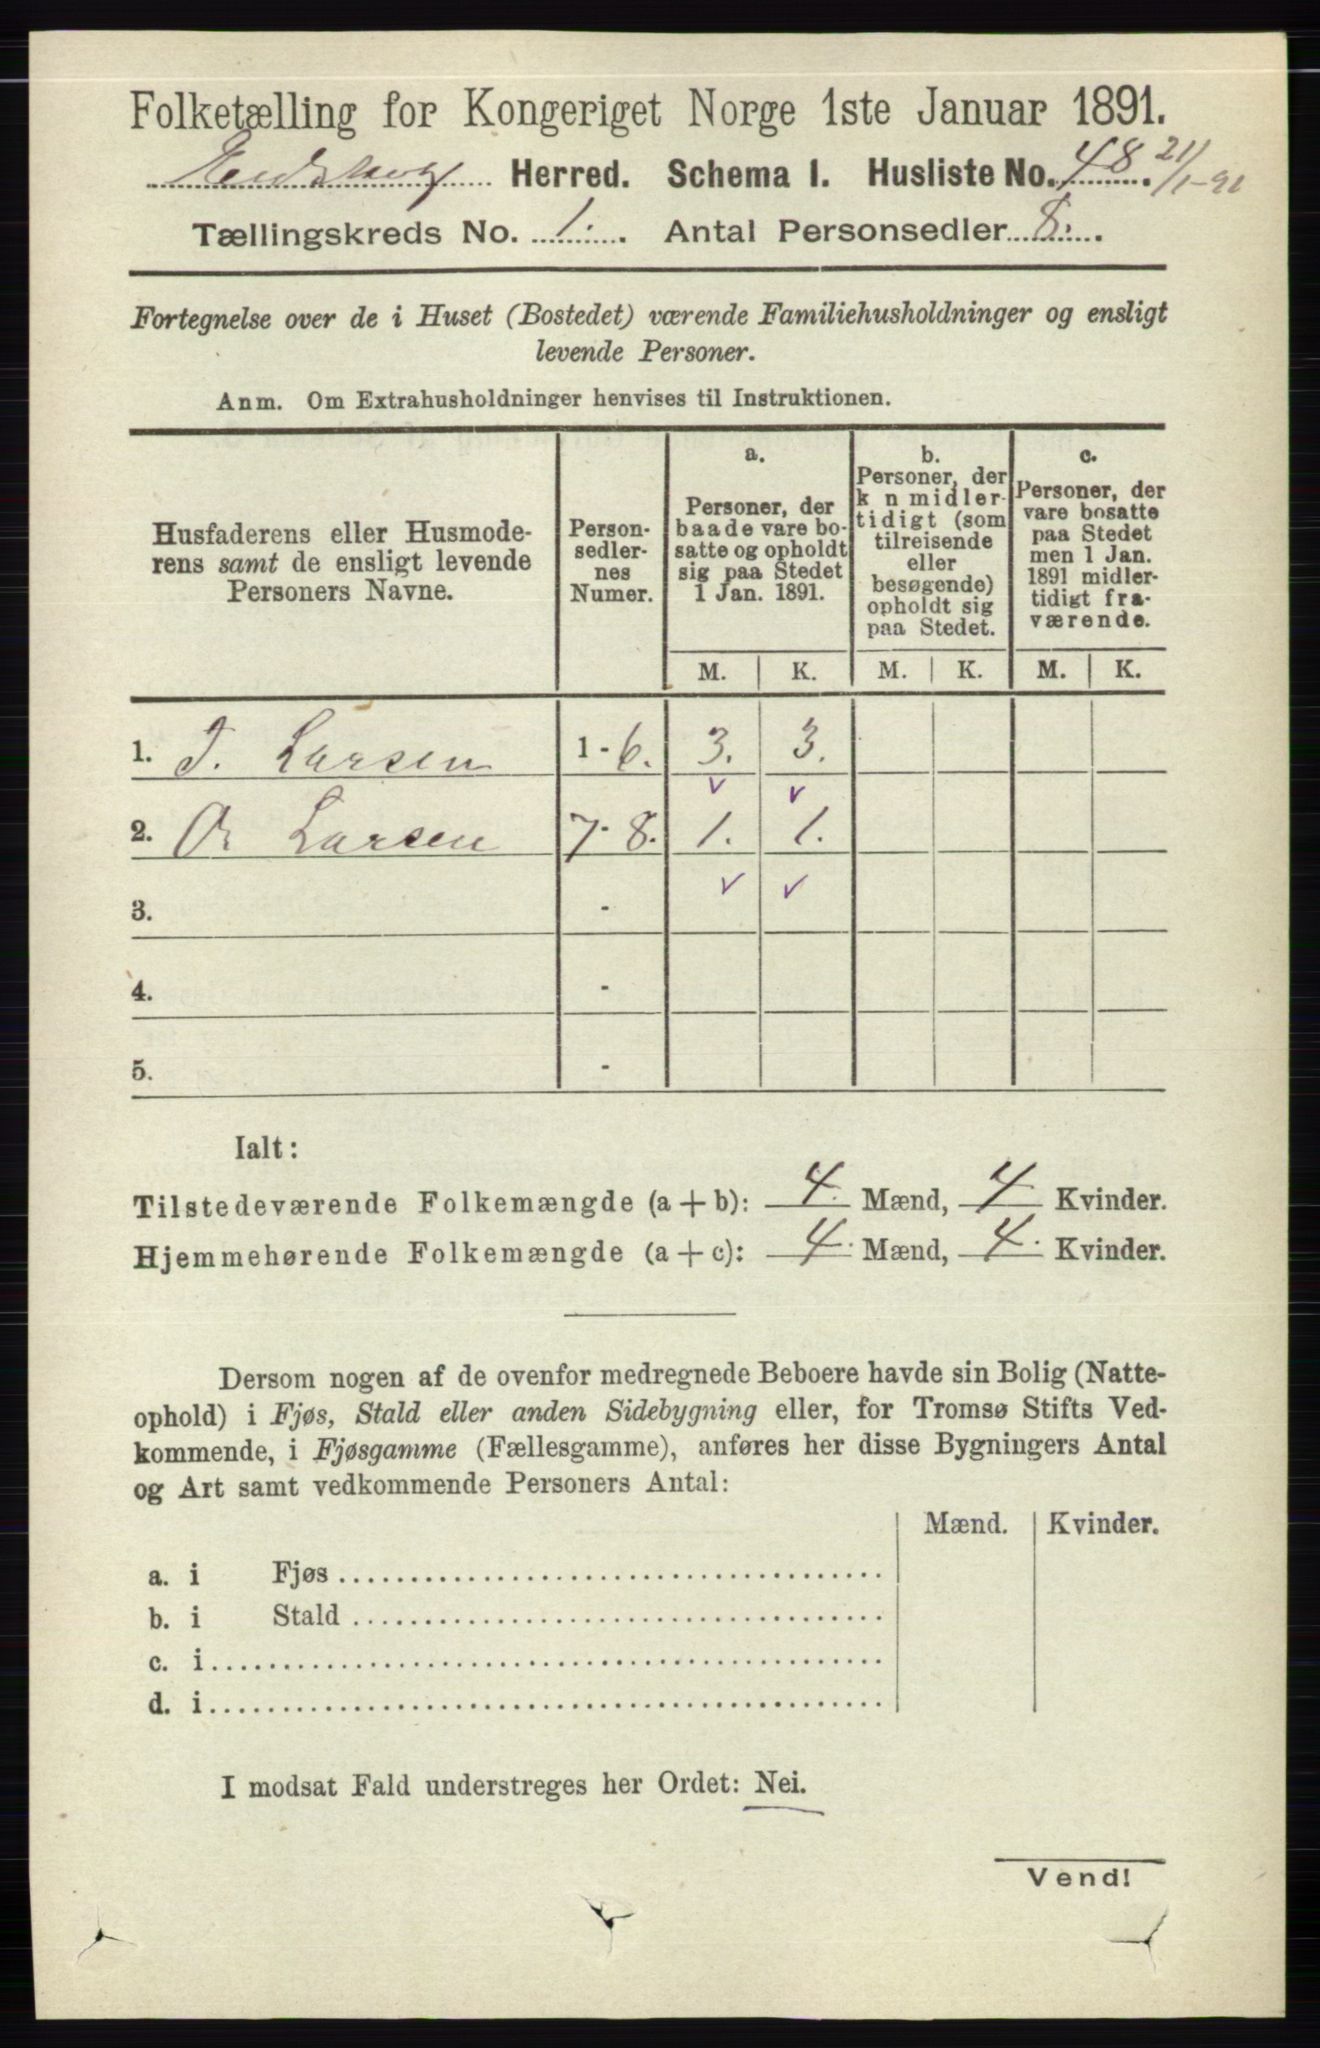 Folketælling for Kongeriget Norge 1ste Januar 1891.
Herred. Schema I. Husliste No. 48. 21/1-91
Tællingskreds No. 1. Antal Personsedler 8.
Fortegnelse over de i Huset (Bostedet) værende Familiehusholdninger og ensligt
levende Personer.
Anm. Om Extrahusholdninger henvises til Instruktionen.
Husfaderens eller Husmode-
rens samt de ensligt levende
Personers Navne.
Person-
sedler-
nes
Numer.
a.
Personer, der
baade vare bo-
satte og opholdt
sig paa Stedet
1 Jan. 1891.
b.
Personer, der
k n midler-
tidigt (som
tilreisende
eller
besøgende)
opholdt sig
paa Stedet.
c.
Personer, der
vare bosatte
paa Stedet
men 1 Jan.
1891 midler-
tidigt fra-
værende.
M. K. M. K. M. K.
1. J. Larsen 1-6. 3. 3.
v v
2. O. Larsen 7-8. 1. 1.
v v
3. -
4. -
5. -
Ialt:
Tilstedeværende Folkemængde (a + b): 4. Mænd, 4 Kvinder.
Hjemmehørende Folkemængde (a + c): 4. Mænd, 4. Kvinder.
Dersom nogen af de ovenfor medregnede Beboere havde sin Bolig (Natte-
ophold) i Fjøs, Stald eller anden Sidebygning eller, for Tromsø Stifts Ved-
kommende, i Fjøsgamme (Fællesgamme), anføres her disse Bygningers Antal
og Art samt vedkommende Personers Antal:
Mænd. Kvinder.
a. i Fjøs
b. i Stald
c. i
d. i
I modsat Fald understreges her Ordet: Nei.
Vend!